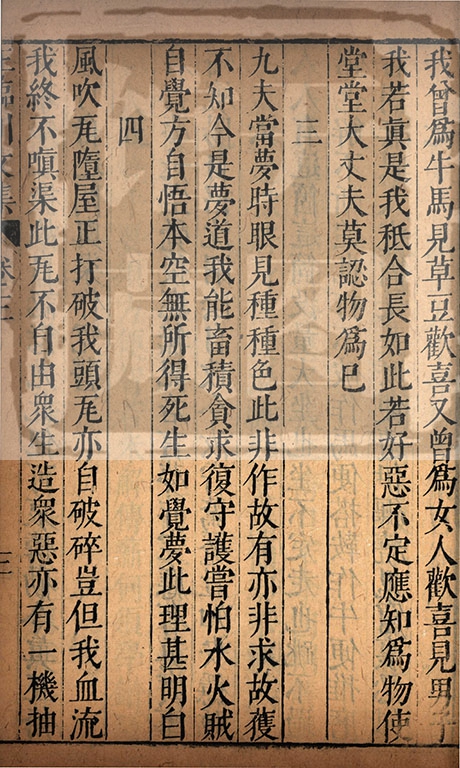 我曾為牛馬見草豆歡喜又曾為女人歡喜見男子
我若真是我秖合長如此若好惡不定應知為物使
堂堂大丈夫莫認物為已
三
九夫當夢時眼見種種色此非作故有亦非求故獲
不知今是夢道我能畜積貪求復守護嘗怕水火賊
自覺方自悟本空無所得死生如覺夢此理甚明白
四
風吹瓦墮屋正打破我頭瓦亦自破碎豈但我血流
我終不嗔渠此瓦不自由衆生造衆惡亦有一機抽
王臨川文集 卷三
三